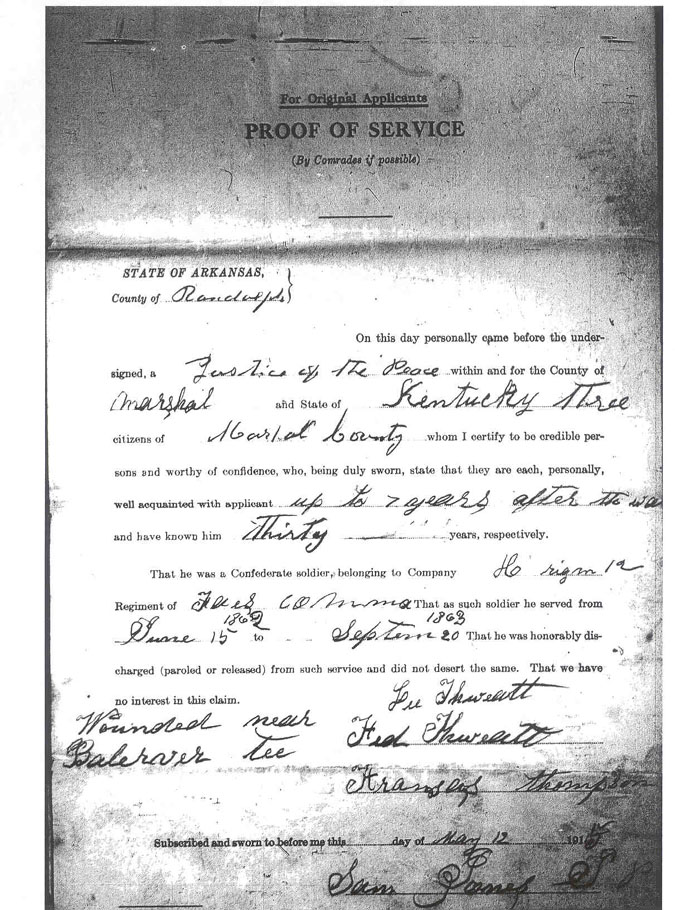 For Original Applicants
PROOF OF SERVICE
(By Comrades if possible)
STATE OF ARKANSAS,
County of Randolph
On this day personally came before the under-
signed, a Justice of the Peace within and for the County of
Marshal and State of Kentucky three
citizens of County whom I certify to be credible per-
sons and worthy of confidence, who, being duly sworn, state that they are each, personally,
well acquainted with applicant up to 7 years after the wa
and have known him thirty years, respectively.
That he was a Confederate soldier, belonging to Company H rigm 12
Regiment of That as such soldier he served from
1862 1863
June 15 to Septem 20 That he was honorably dis-
charged (paroled or released) from such service and did not desert the same. That we have
no interest in this claim.
Lee Thweatt
Wounded near
Fed Thweatt
Tee
Thompson
Subscribed and sworn to before me this day of May 12 191
Sam Jones J P